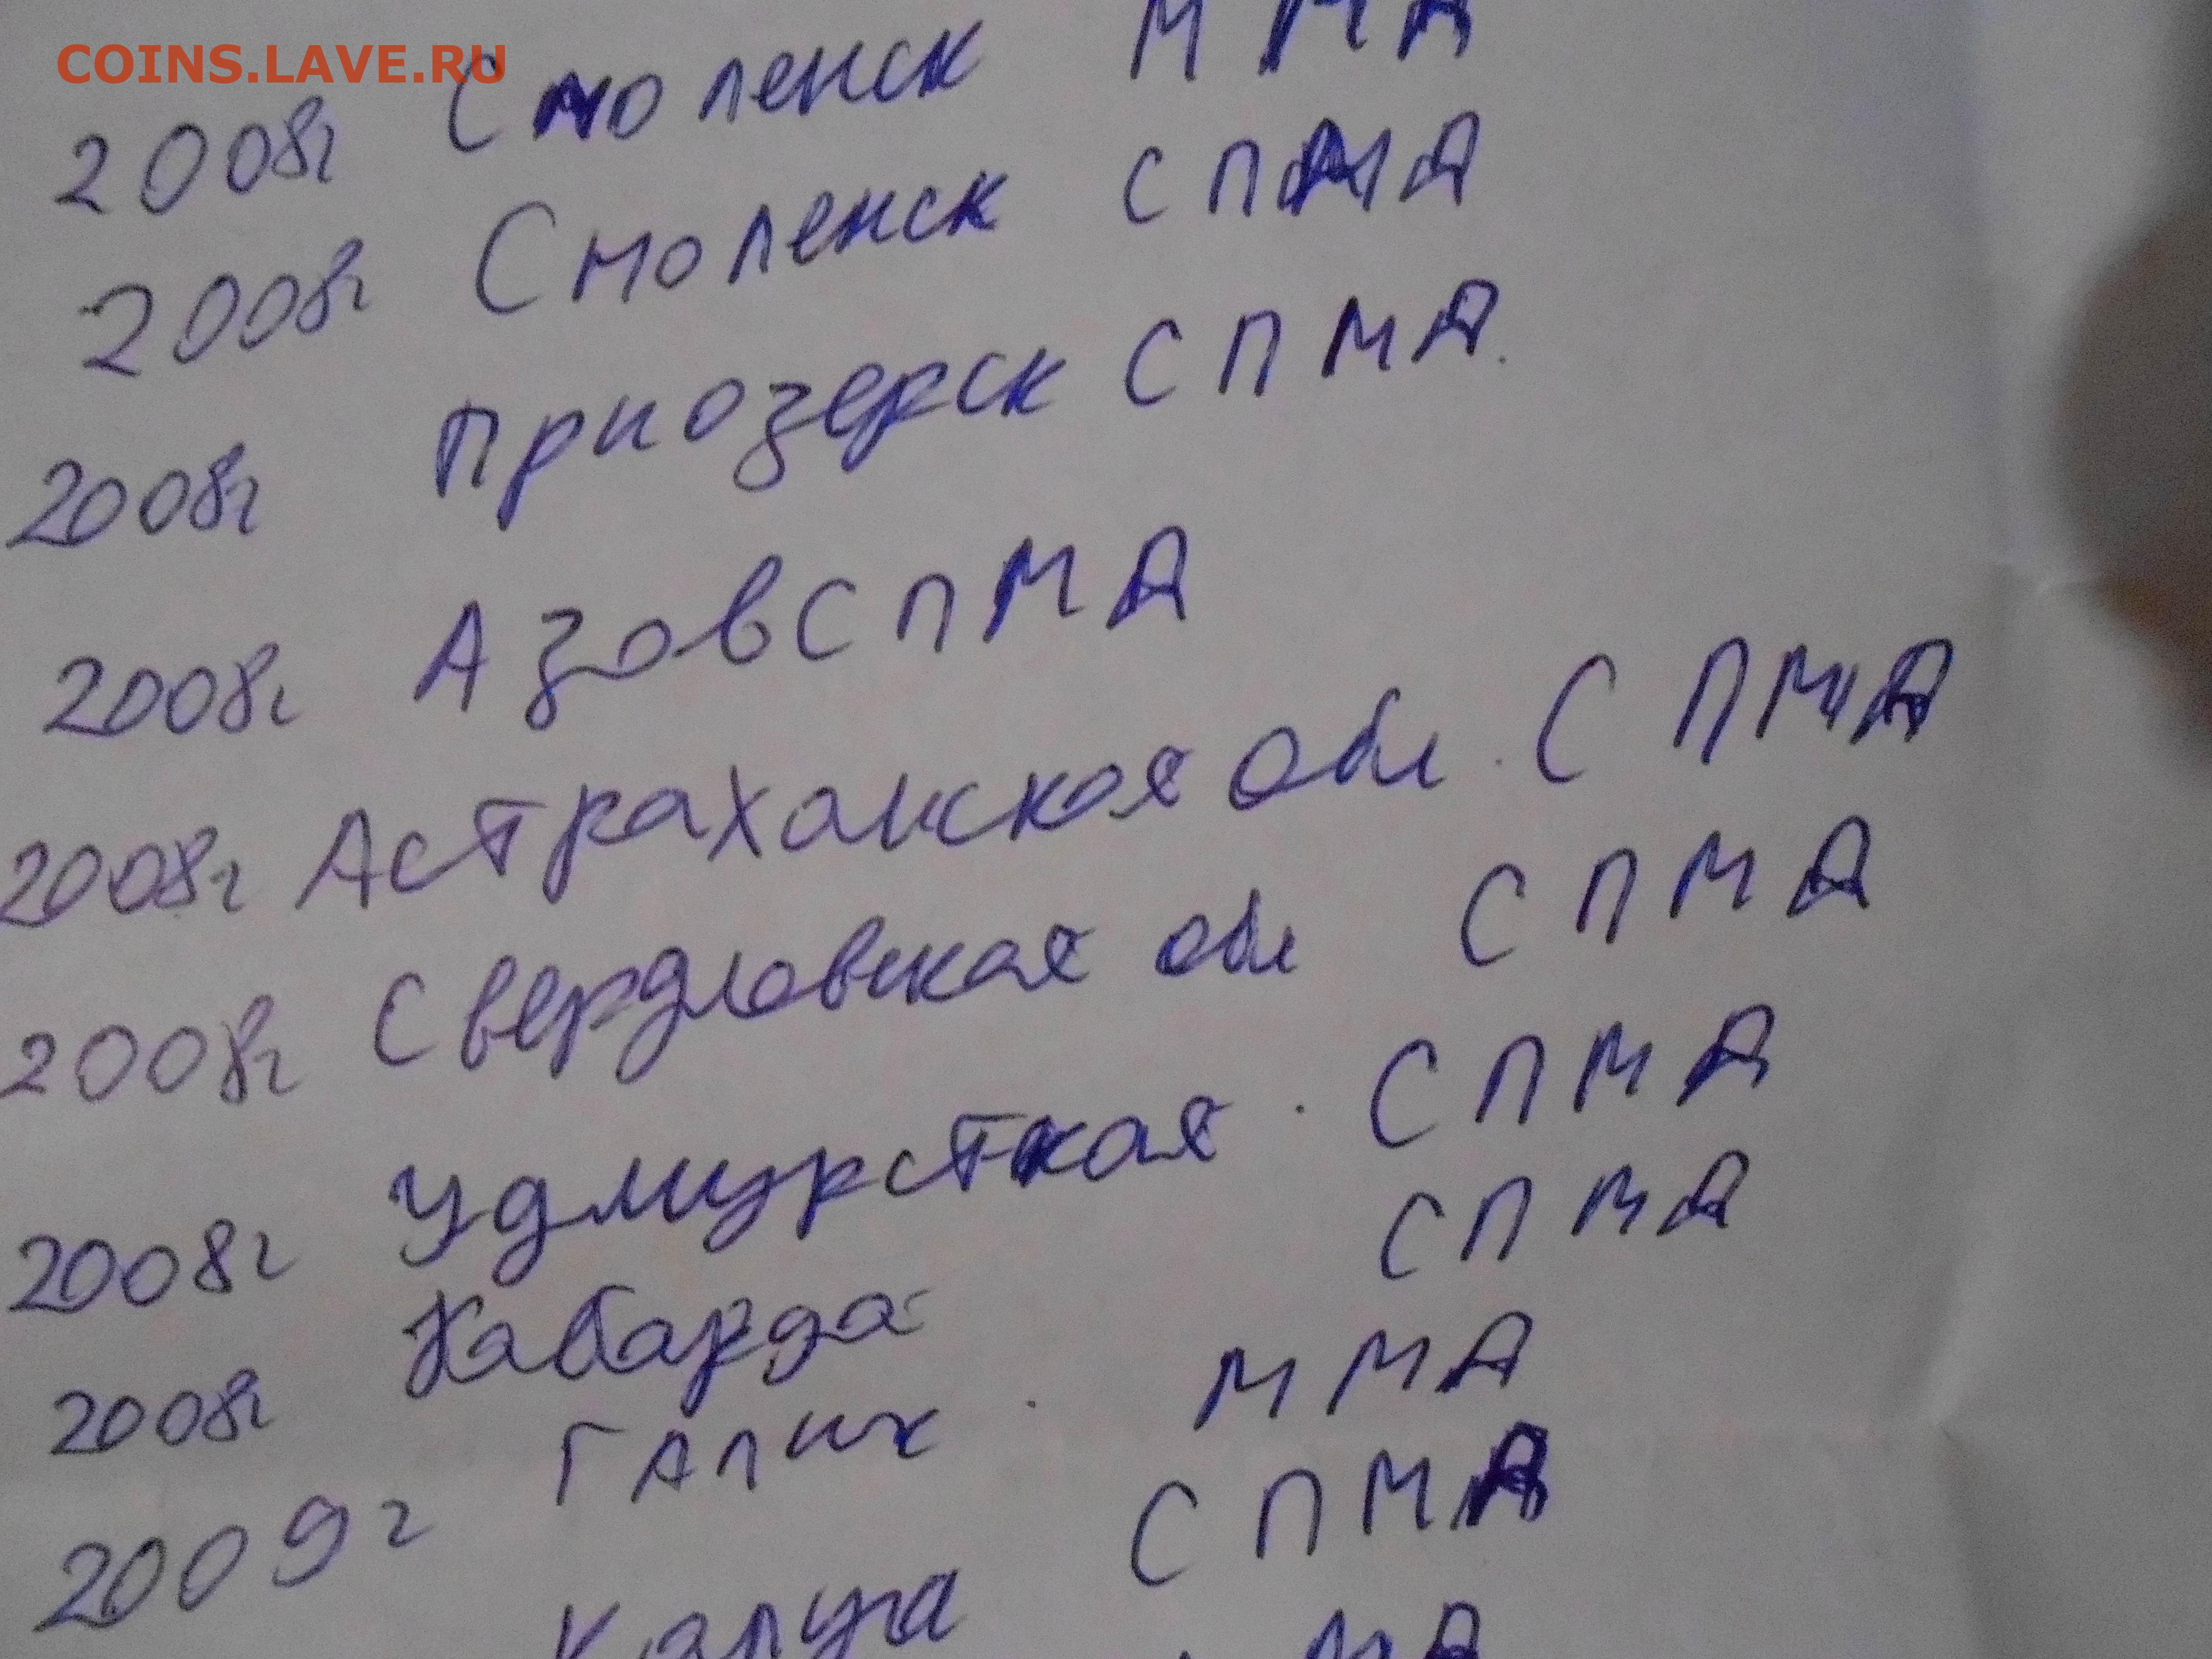 COINS.LAVE.RU
2008г Смоленск ММД
2008г Смоленск СПМД
2008г Приозерск СПМД.
2008г Азов СПМД
2008г Астраханская обл. СПМД
2008г Свердловская обл СПМД
2008г Удмурсткая. СПМД
2008г Кабарда СПМД
2009г Галич. ММД
Калуга СПМД
МД